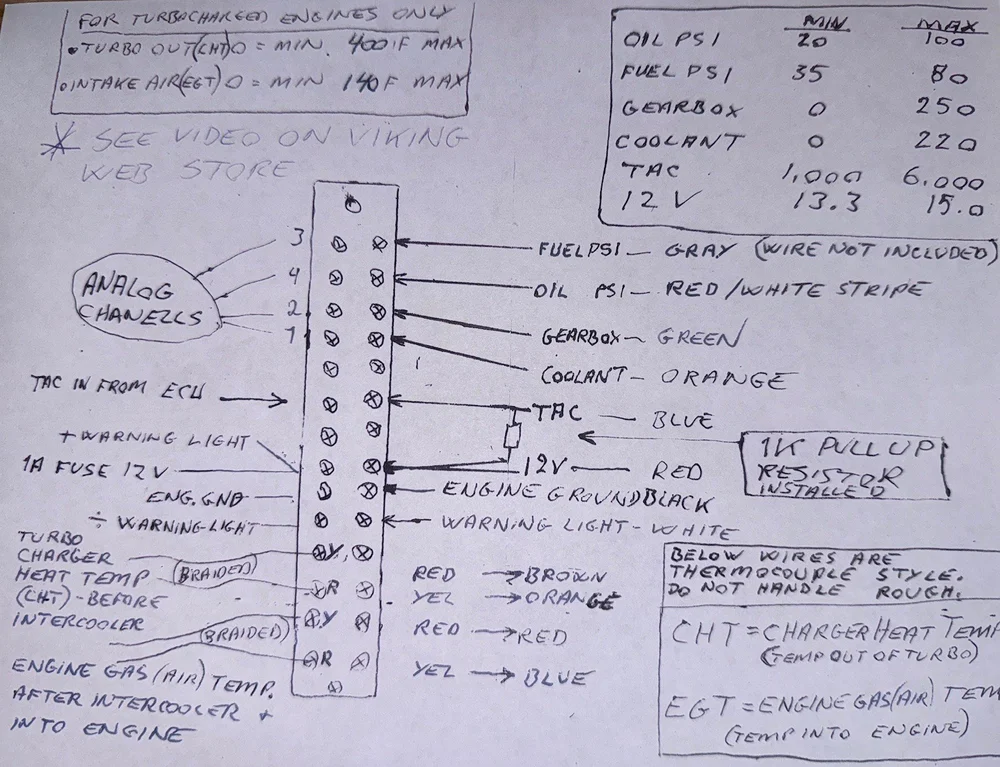 FOR TURBOCHARGED ENGINES ONLY
• TURBO OUT (CHT) 0 = MIN. 400 F MAX
• INTAKE AIR (EGT) 0 = MIN 140 F MAX
* SEE VIDEO ON VIKING
WEB STORE
MIN MAX
OIL PSI 20 100
FUEL PSI 35 80
GEARBOX 0 250
COOLANT 0 220
TAC 1,000 6,000
12 V 13.3 15.0
ANALOG
CHANELLS
3
4
2
1
FUEL PSI — GRAY (WIRE NOT INCLUDED)
OIL PSI — RED/WHITE STRIPE
GEARBOX — GREEN
COOLANT — ORANGE
TAC IN FROM ECU
TAC — BLUE
1K PULL UP
RESISTOR
INSTALLED
+ WARNING LIGHT
1A FUSE 12 V
12V — RED
ENG. GND
ENGINE GROUND BLACK
÷ WARNING LIGHT
WARNING LIGHT - WHITE
TURBO
CHARGER
HEAT TEMP
(CHT) - BEFORE
INTERCOOLER
(BRAIDED)
(BRAIDED)
Y
R
Y
R
RED → BROWN
YEL → ORANGE
RED → RED
YEL → BLUE
ENGINE GAS (AIR) TEMP.
AFTER INTERCOOLER +
INTO ENGINE
BELOW WIRES ARE
THERMOCOUPLE STYLE.
DO NOT HANDLE ROUGH.
CHT = CHARGER HEAT TEMP
(TEMP OUT OF TURBO)
EGT = ENGINE GAS (AIR) TEM
(TEMP INTO ENGINE)